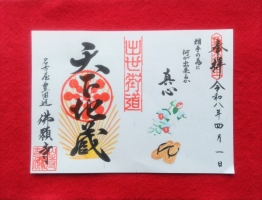 奉拝
令和八年四月一日
相手の為に
何が出来るか
真心
出世街道
天下地蔵
佛願寺